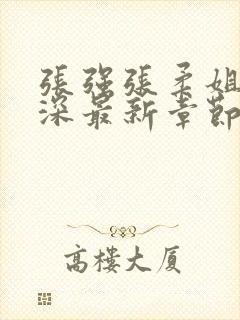 張强張柔姐
深最新章節
高樓大厦